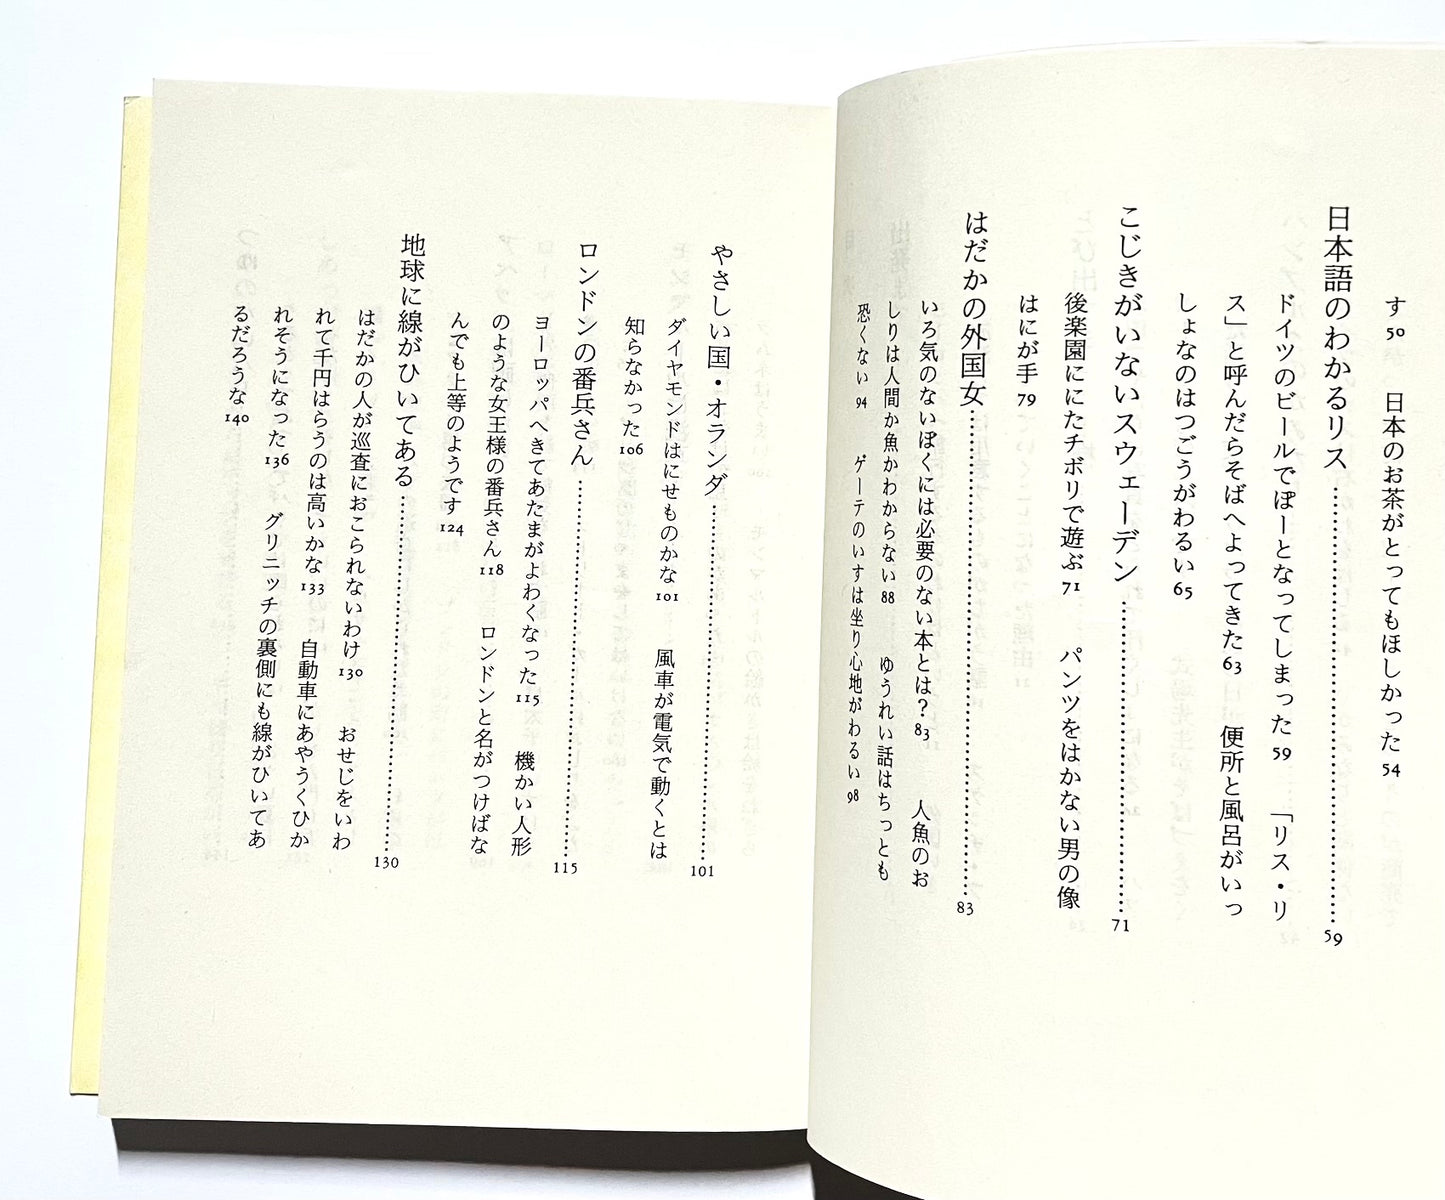 す 50　日本のお茶がとってもほしかった 54
日本語のわかるリス……………… 59
ドイツのビールでぽーとなってしまった 59　「リス・リ
ス」と呼んだらそばへよってきた 63　便所と風呂がいっ
しょなのはつごうがわるい 65
こじきがいないスウェーデン……………… 71
後楽園ににたチボリで遊ぶ 71　パンツをはかない男の像
はにが手 79
はだかの外国女……………… 83
いろ気のないぼくには必要のない本とは？ 83　人魚のお
しりは人間か魚かわからない 88　ゆうれい話はちっとも
恐くない 94　ゲーテのいすは坐り心地がわるい 98
やさしい国・オランダ……………… 101
ダイヤモンドはにせものかな 101　風車が電気で動くとは
知らなかった 106
ロンドンの番兵さん……………… 115
ヨーロッパへきてあたまがよわくなった 115　機かい人形
のような女王様の番兵さん 118　ロンドンと名がつけばな
んでも上等のようです 124
地球に線がひいてある……………… 130
はだかの人が巡査におこられないわけ 130　おせじをいわ
れて千円はらうのは高いかな 133　自動車にあやうくひか
れそうになった 136　グリニッチの裏側にも線がひいてあ
るだろうな 140